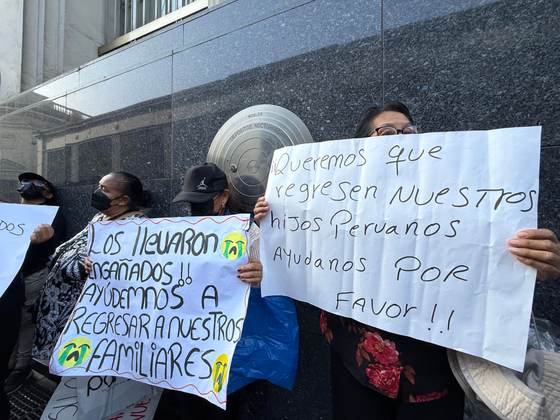 DOS
LOS llevaron
engañados!!
AYUDEMNOS A
REGRESAR A NUESTROS
FAMiliARES
Queremos que
regresen NUESTROS
hijos Peruanos
Ayudanos POR
FAVOR!!